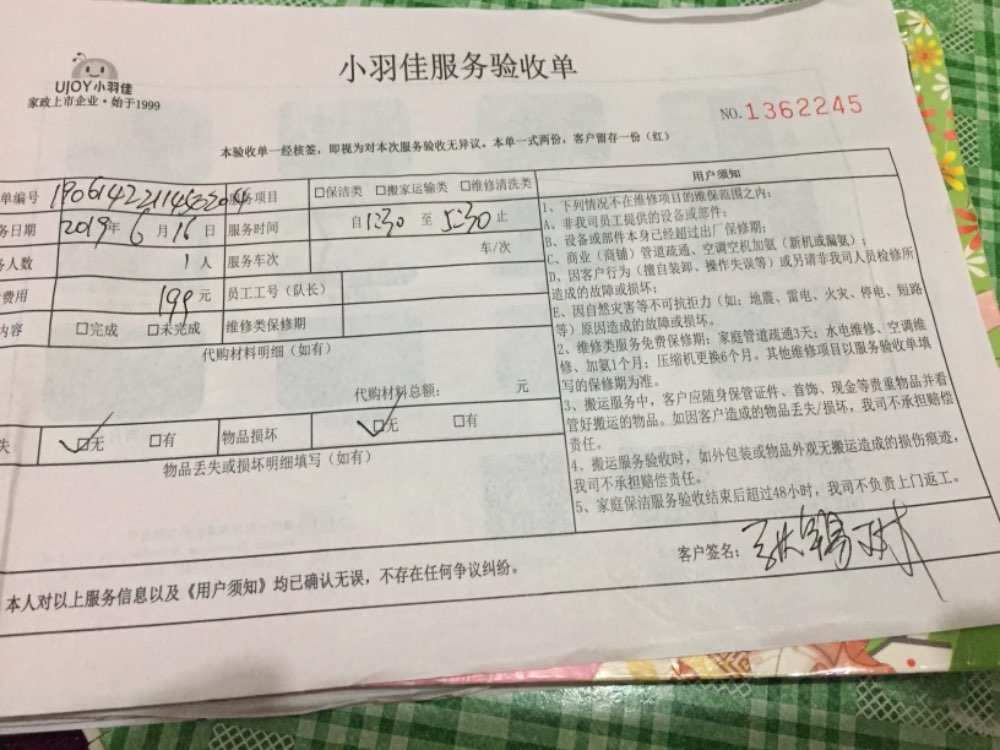 UJOY小羽佳
家政上市企业·始于1999
小羽佳服务验收单
NO.1362245
本验收单一经核签，即视为对本次服务验收无异议。本单一式两份，客户留存一份（红）
单编号 服务项目 □保洁类 □搬家运输类 □维修清洗类
务日期 2019年6月16日 服务时间 自1:30至5:30止
务人数 1人 服务车次 车/次
费用 199元 员工工号（队长）
内容 □完成 □未完成 维修类保修期
代购材料明细（如有）
代购材料总额： 元
失 □无 □有 物品损坏 □无 □有
物品丢失或损坏明细填写（如有）
用户须知
1、下列情况不在维修项目的维保范围之内：
A、非我司员工提供的设备或部件；
B、设备或部件本身已经超过出厂保修期；
C、商业（商铺）管道疏通、空调空机加氨（新机或漏氨）；
D、因客户行为（擅自装卸、操作失误等）或另请非我司人员检修所
造成的故障或损坏；
E、因自然灾害等不可抗拒力（如：地震、雷电、火灾、停电、短路
等）原因造成的故障或损坏。
2、维修类服务免费保修期：家庭管道疏通3天；水电维修、空调维
修、加氨1个月；压缩机更换6个月。其他维修项目以服务验收单填
写的保修期为准。
3、搬运服务中，客户应随身保管证件、首饰、现金等贵重物品并看
管好搬运的物品。如因客户造成的物品丢失/损坏，我司不承担赔偿
责任。
4、搬运服务验收时，如外包装或物品外观无搬运造成的损伤痕迹，
我司不承担赔偿责任。
5、家庭保洁服务验收结束后超过48小时，我司不负责上门返工。
客户签名：
本人对以上服务信息以及《用户须知》均已确认无误，不存在任何争议纠纷。